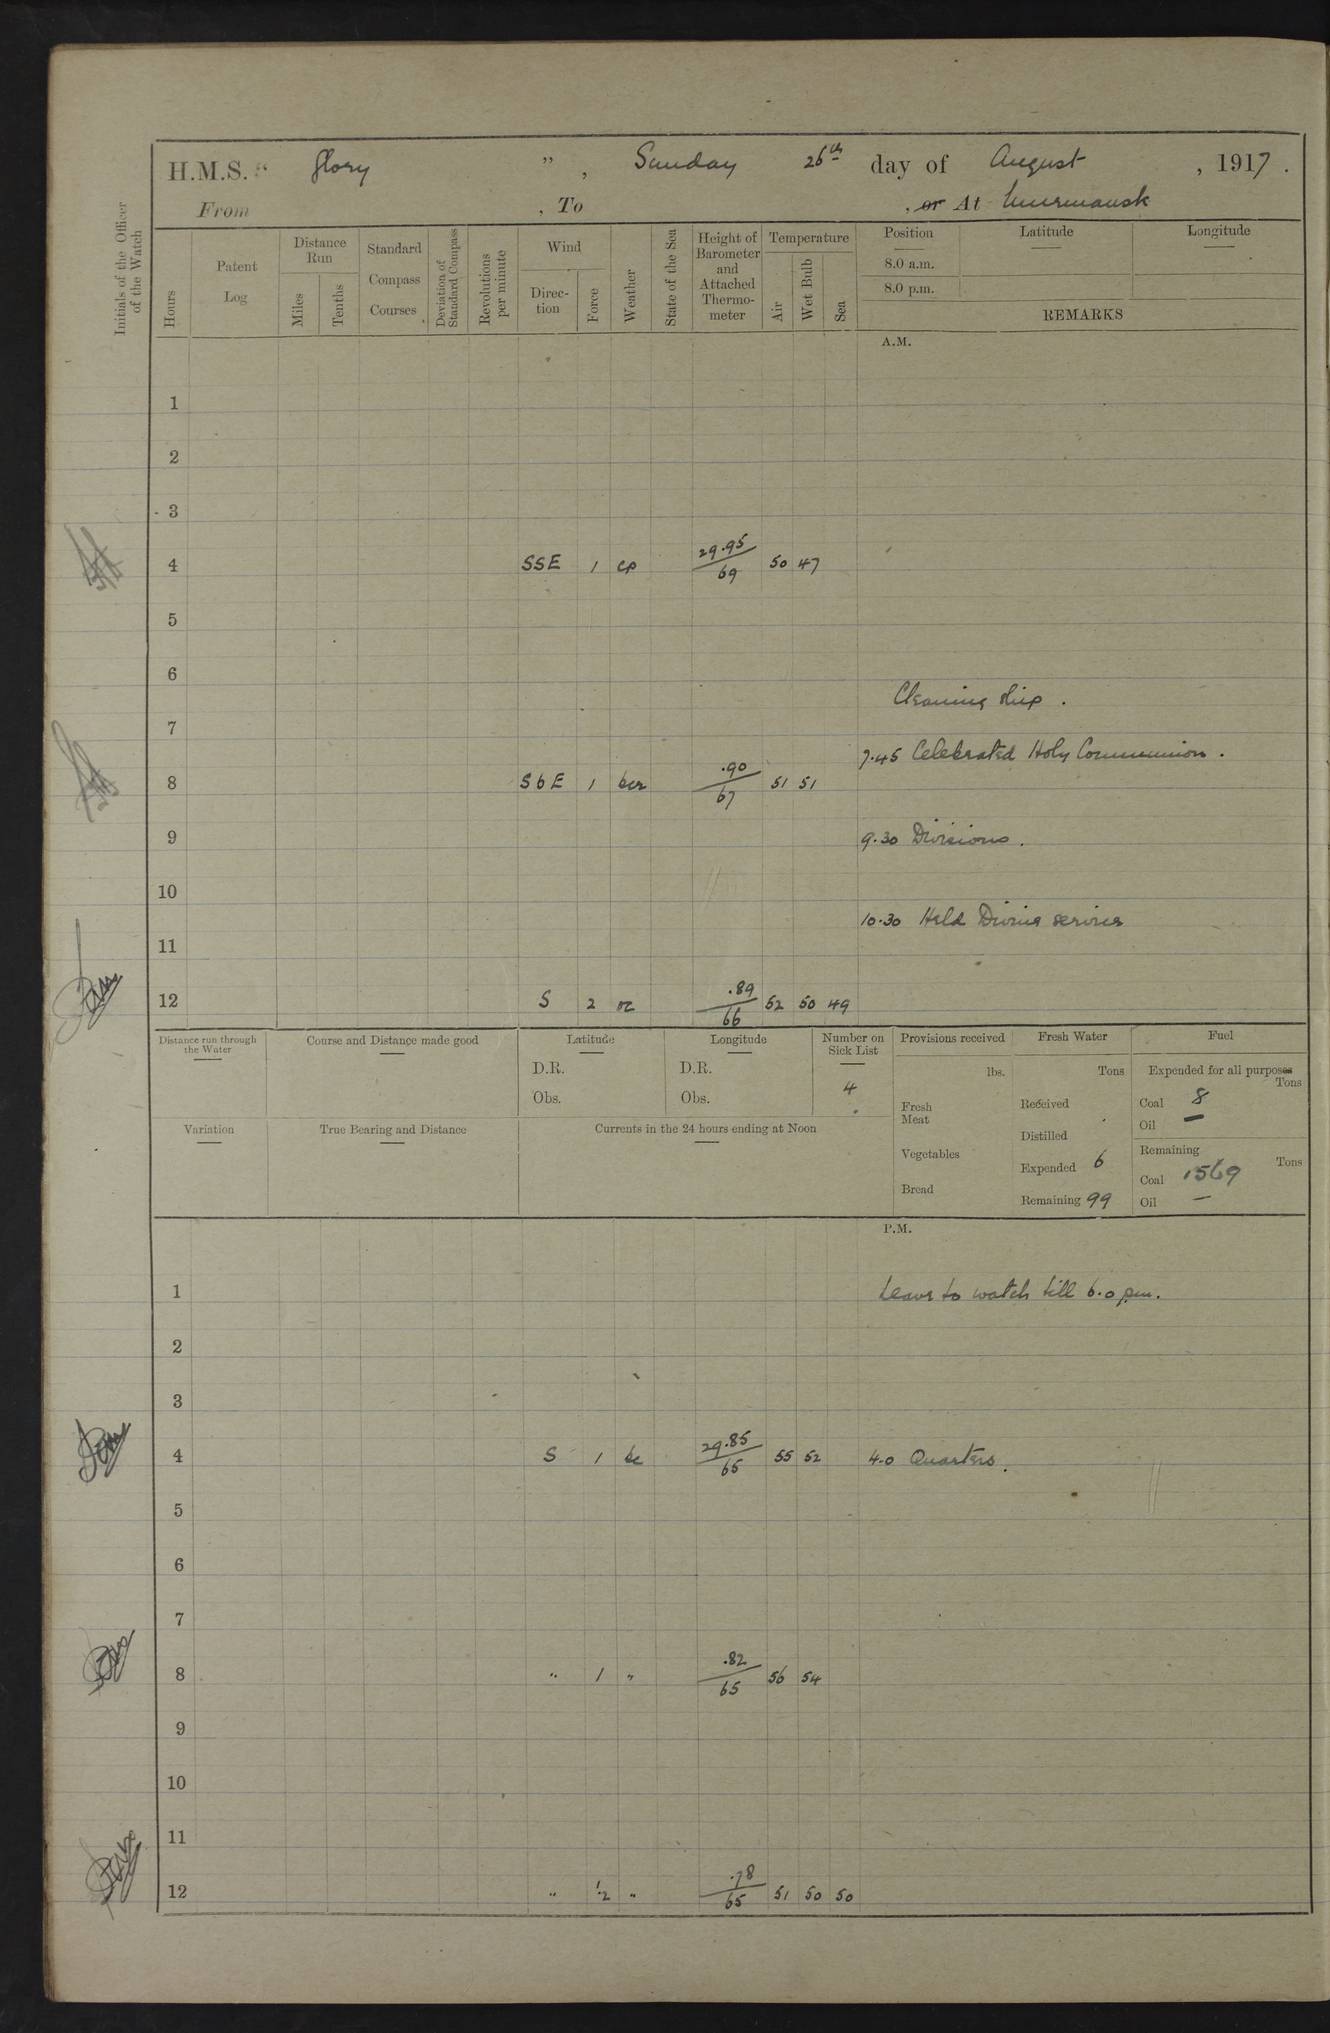 H.M.S. "Glory", Sunday 26th day of August, 1917.
From , To , or At Murmansk
Initials of the Officer of the Watch
Hours
Patent Log
Distance Run
Miles
Tenths
Standard Compass Courses
Deviation of Standard Compass
Revolutions per minute
Wind
Direction
Force
Weather
State of the Sea
Height of Barometer and Attached Thermometer
Temperature
Air
Wet Bulb
Sea
Position Latitude Longitude
8.0 a.m.
8.0 p.m.
REMARKS
A.M.
1
2
3
4 SSE 1 cp 29.95/69 50 47
5
6
Cleaning ship.
7
7.45 Celebrated Holy Communion.
8 SbE 1 bcr .90/67 51 51
9 9.30 Divisions.
10
10.30 Held Divine service
11
12 S 2 oc .89/66 52 50 49
Distance run through the Water
Course and Distance made good
Latitude
D.R.
Obs.
Longitude
D.R.
Obs.
Number on Sick List
4
Provisions received
lbs.
Fresh Meat
Vegetables
Bread
Fresh Water
Tons
Received
Distilled
Expended 6
Remaining 99
Fuel
Expended for all purposes
Tons
Coal 8
Oil —
Remaining
Tons
Coal 1569
Oil —
Variation
True Bearing and Distance
Currents in the 24 hours ending at Noon
P.M.
1 Leave to watch till 6.0 pm.
2
3
4 S 1 bc 29.85/65 55 52 4.0 Quarters.
5
6
7
8 " 1 " .82/65 56 54
9
10
11
12 " 1.2 " .78/65 51 50 50